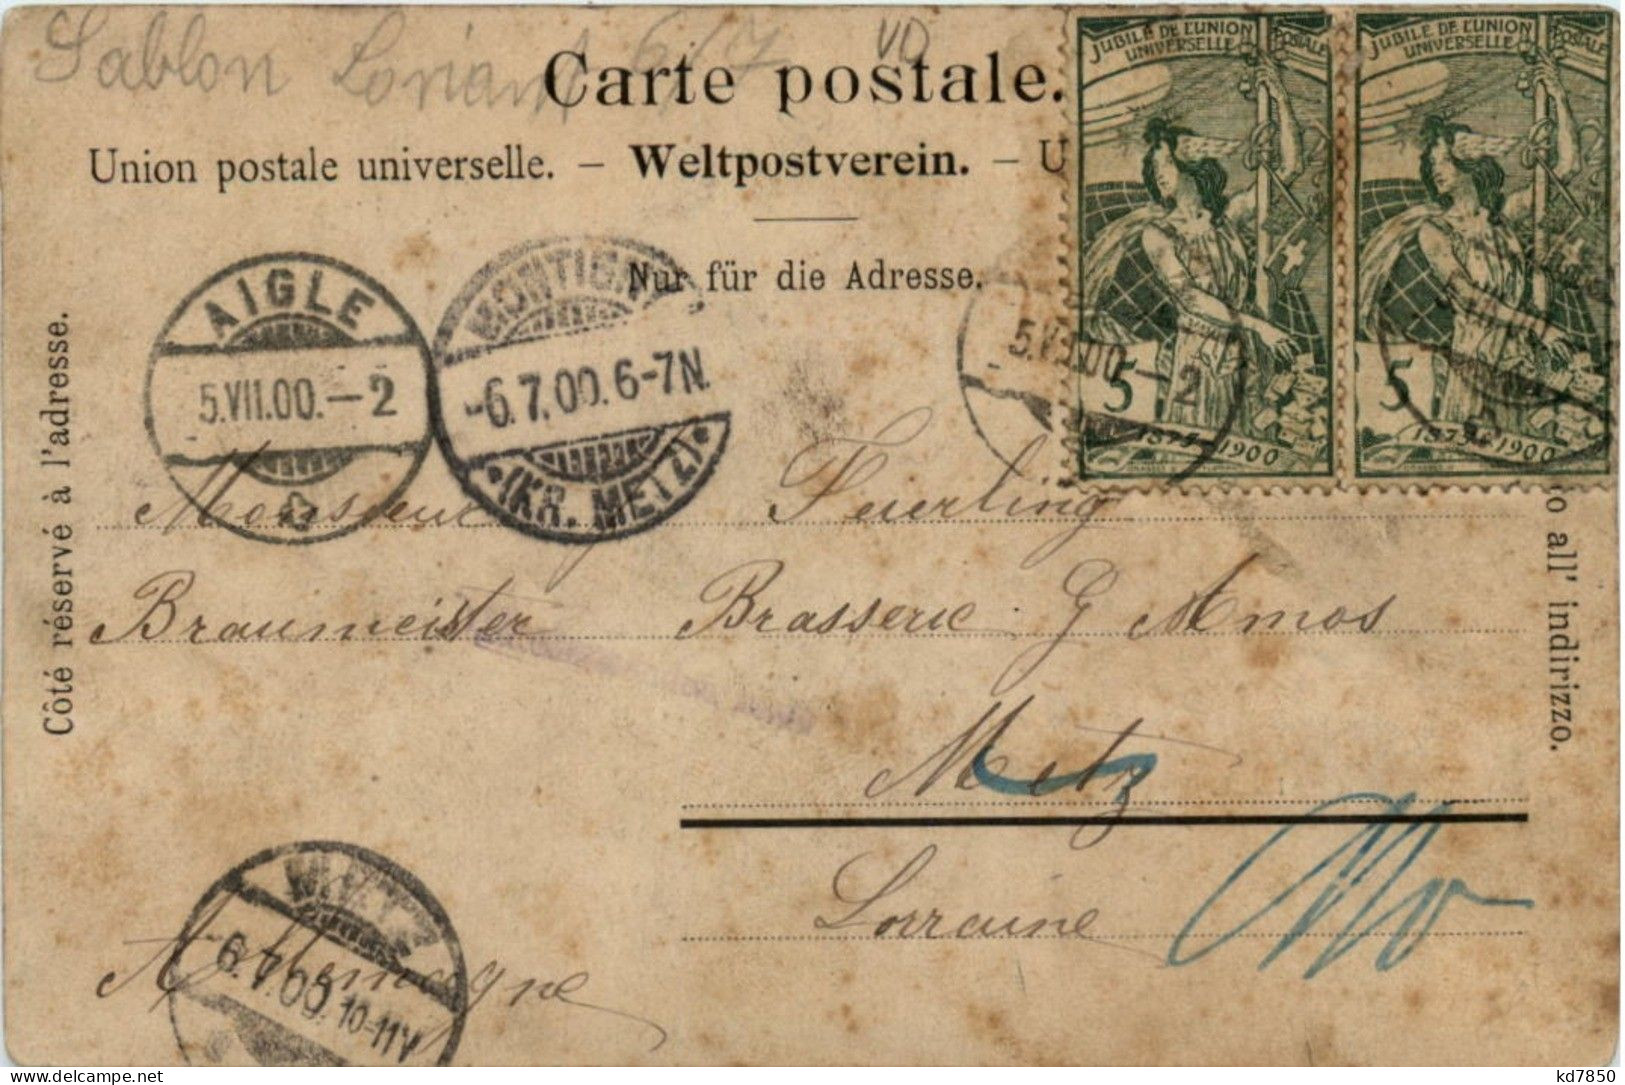 Sablon 6/7 VD
Carte postale.
Union postale universelle. – Weltpostverein. – U
Nur für die Adresse.
JUBILÉ DE L'UNION POSTALE
UNIVERSELLE
5
1875-1900
JUBILÉ DE L'UNION POSTALE
UNIVERSELLE
5
1875-1900
AIGLE
5.VII.00.–2
MONTIGNY
-6.7.00.6-7N.
*(KR. METZ)*
5.VII.00.–2
5.VII.00
Côté réservé à l'adresse.
all' indirizzo.
Monsieur Feuerling
Braumeister Brasserie G Amos
Metz
Lorraine
Allemagne
METZ
6.7.00.10-11V
kd7850